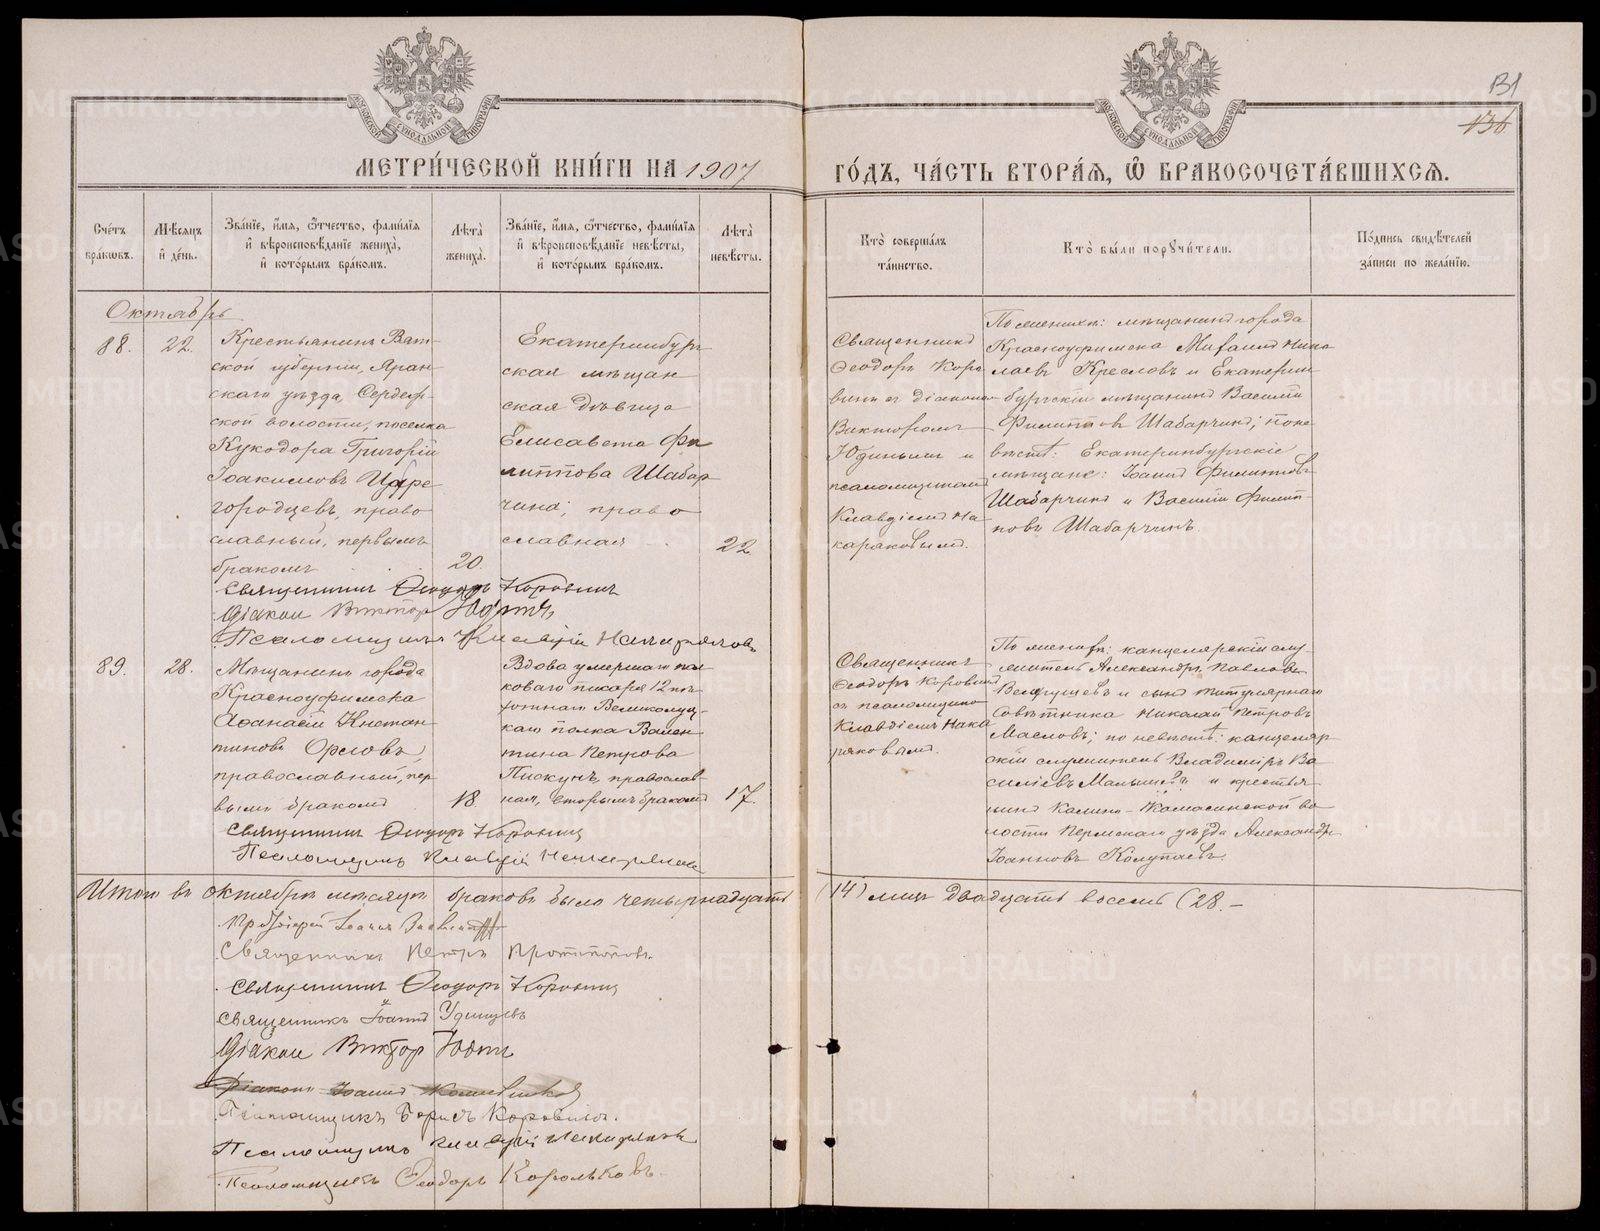 МОСКОВСКОЙ СУНОДАЛЬНОЙ ТИПОГРАФИИ
МОСКОВСКОЙ СУНОДАЛЬНОЙ ТИПОГРАФИИ
131
136
МЕТРИ́ЧЕСКОЙ КНИ́ГИ НА 1907
ГО́ДЪ, ЧА́СТЬ ВТОРА́Ѧ, Ѽ БРАКОСОЧЕТА́ВШИХСѦ.
Сче́тъ бра́кѡвъ.
Мѣ́сяцъ и҆ де́нь.
Зва́нїе, и҆́мя, ѻ҆́тчество, фами́лїя и҆ вѣроисповѣ́данїе жениха̀, и҆ кото́рымъ бра́комъ.
Лѣ́та жениха̀.
Зва́нїе, и҆́мя, ѻ҆́тчество, фами́лїя и҆ вѣроисповѣ́данїе невѣ́сты, и҆ кото́рымъ бра́комъ.
Лѣ́та невѣ́сты.
Кто̀ соверша́лъ та́инство.
Кто̀ бы́ли порꙋчи́тели.
По́дпись свидѣ́телей за́писи по жела́нїю.
Октябрь
88.
22.
Крестьянинъ Вят-
ской губерніи, Яран-
скаго уѣзда, Сердеж-
ской волости, поселка
Кукодора Григорій
Іоакимовъ Царе
городцевъ, право
славный, первымъ
бракомъ
20.
Екатеринбург
ская мѣщан
ская дѣвица
Елисавета Фи
липпова Шабар
чина; право
славная
22
Священникъ
Ѳеодоръ Коро
винъ съ діакономъ
Викторомъ
Юдинымъ и
псаломщикомъ
Клавдіемъ На
каряковымъ.
По женихѣ: мѣщанинъ города
Красноуфимска Михаилъ Нико
лаевъ Кресловъ и Екатерин
бургскій мѣщанинъ Василій
Филипповъ Шабарчинъ; по не
вѣстѣ: Екатеринбургскіе
мѣщане: Іоаннъ Филипповъ
Шабарчинъ и Василій Филип
повъ Шабарчинъ.
Священникъ Ѳеодоръ Коровинъ
Діаконъ Викторъ Юдинъ
Псаломщикъ Клавдій Накаряковъ
89.
28.
Мѣщанинъ города
Красноуфимска
Аѳанасій Констан
тиновъ Орловъ,
православный, пер
вымъ бракомъ
18.
Вдова умершаго пол
коваго писаря 12 пѣ-
хотнаго Великолуц-
каго полка Вален
тина Петрова
Пискунъ, православ-
ная, вторымъ бракомъ
17.
Священникъ
Ѳеодоръ Коровинъ
съ псаломщико
Клавдіемъ Нака
ряковымъ.
По женихѣ: канцелярскій слу
житель Александръ Павловъ
и сынъ титулярнаго
Совѣтника Николай Петровъ
Масловъ; по невѣстѣ: канцеляр
скій служитель Владиміръ Ва
сильевъ Малышевъ и крестья
нинъ Калино-Камасинской во
лости Пермскаго уѣзда Александръ
Іоанновъ Колупаевъ.
Священникъ Ѳеодоръ Коровинъ
Псаломщикъ Клавдій Накаряковъ
Итого въ октябрѣ мѣсяцѣ браковъ было четырнадцать (14) лицъ двадцать восемь (28. –
Іоаннъ
Священникъ Петръ
Священникъ Ѳеодоръ Коровинъ
Священникъ Іоаннъ Удинцевъ
Діаконъ Викторъ Юдинъ
Діаконъ Іоаннъ
Псаломщикъ Борисъ Коровинъ.
Псаломщикъ Клавдій Накаряковъ
Псаломщикъ Ѳеодоръ Корольковъ.
METRIKI.GASO-URAL.RU